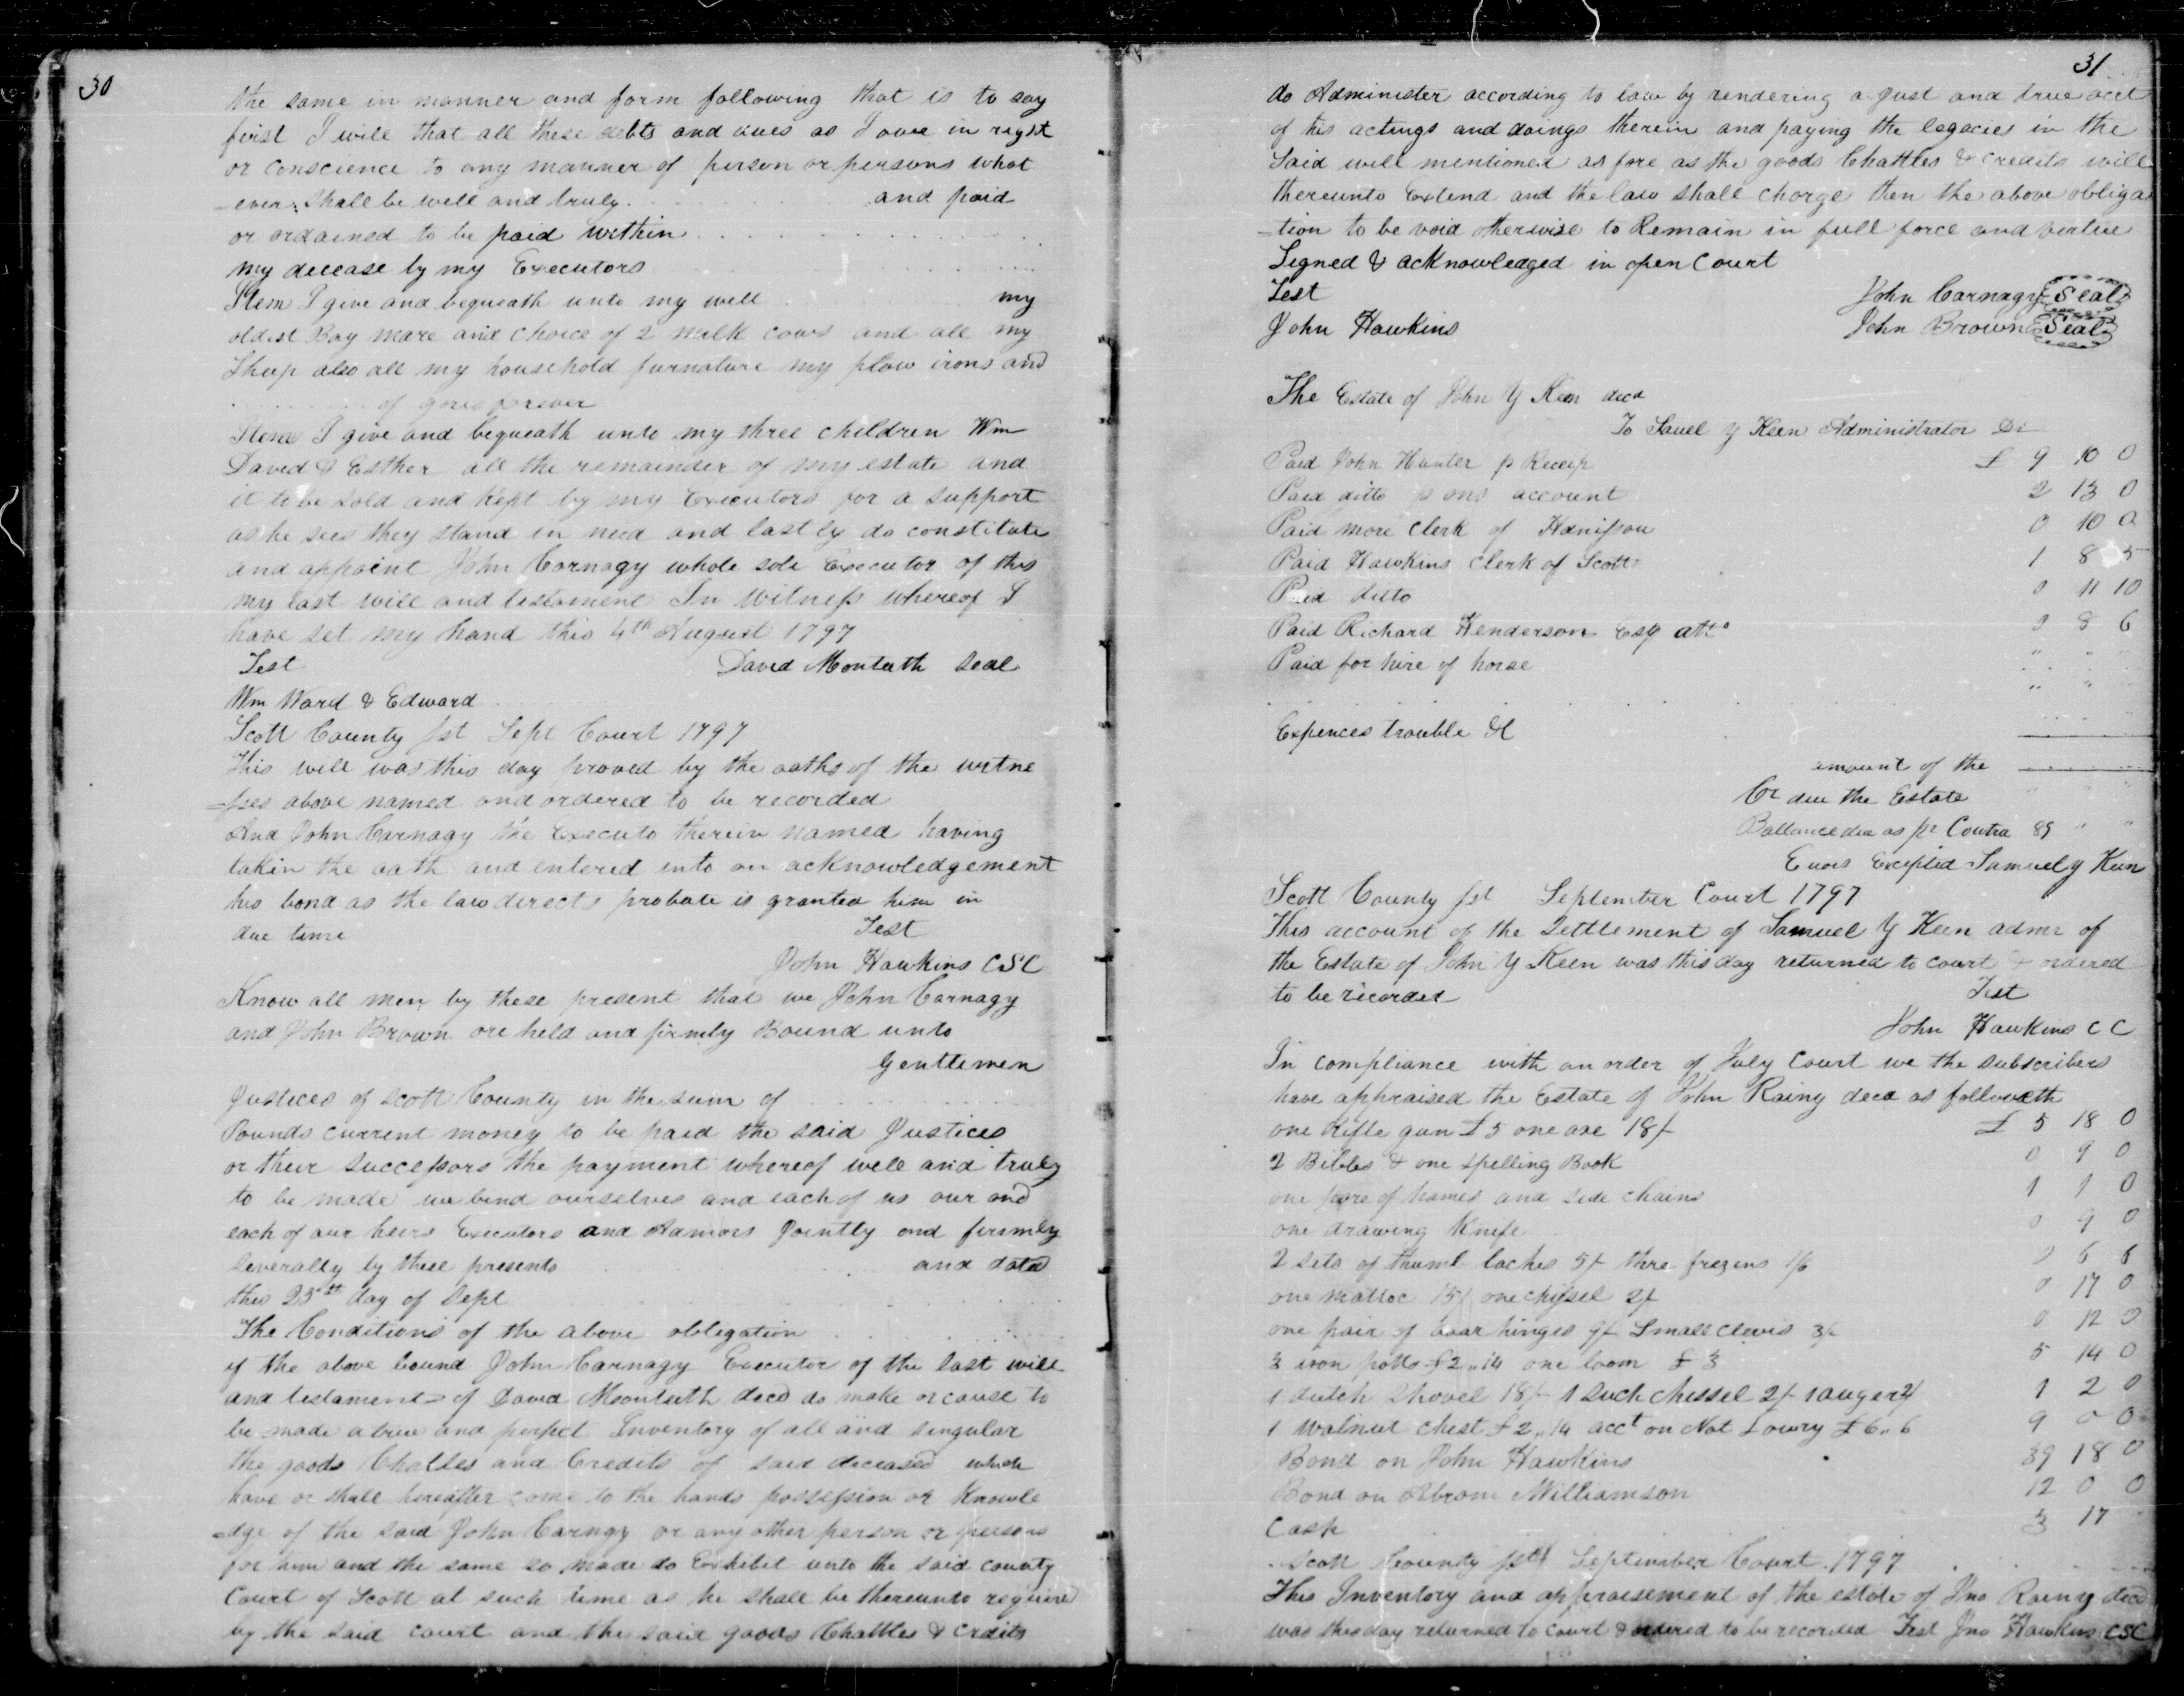 30
the same in manner and form following that is to say
first I will that all these debts and dues as I owe in reght
or conscience to any manner of person or persons what
-ever: shall be well and truly . . . . and paid
or ordained to be paid within . . . .
my decease by my Executors . . . .
Item I give and bequeath unto my well . . . . my
oldest Bay mare and choice of 2 milk cows and all my
Sheep also all my household furnature my plow irons and
. . . . of gores forever
Item I give and bequeath unto my three children Wm
David & Esther all the remainder of my estate and
it to be sold and kept by my Executors for a support
as he sees they stand in need and lastly do constitute
and appoint John Carnagy whole sole Executor of this
my last will and testament In witness whereof I
have set my hand this 4th August 1797
Test David Monteith Seal
Wm Ward & Edward . . . .
Scott County Sct Sept Court 1797
This will was this day proved by the oaths of the witne
=sses above named and ordered to be recorded
And John Carnagy the Executo therein named having
taken the oath and entered into an acknowledgement
his bond as the law directs probate is granted him in
due time Test
John Hawkins CSC
Know all men by these present that we John Carnagy
and John Brown are held and firmly Bound unto
Gentlemen
Justices of Scott County in the sum of . . . .
Pounds current money to be paid the said Justices
or their successors the payment whereof well and truly
to be made we bind ourselves and each of us our and
each of our heirs Executors and Admors Jointly and firmly
Severally by these presents . . . . and dated
this 23rd day of Sept . . . .
The Conditions of the above obligation . . . .
if the above bound John Carnagy Executor of the last will
and testament of David Monteith decd do make or cause to
be made a true and perfect Inventory of all and singular
the goods Chattles and Credits of said deceased which
have or shall hereafter come to the hands possession or Knowle
=dge of the said John Carngy or any other person or persons
for him and the same so made do Exhibit unto the said county
Court of Scott at such time as he shall be thereunto required
by the said court and the said goods Chattles & Crdits
31
do Administer according to law by rendering a Just and true acct
of his actings and doings therein and paying the legacies in the
Said will mentioned as fore as the goods Chattles & credits will
thereunto Extend and the law shall charge then the above obliga
=tion to be void otherwise to Remain in full force and virtue
Signed & acknowledged in open Court
Test John Carnagy Seal
John Hawkins John Brown Seal
The Estate of John Y Keen decd
To Sauel Y Keen Administrator Dr
Paid John Hunter p Receip £ 9 10 0
Paid ditto p ons account 2 13 0
Paid more clerk of Harrisson 0 10 0
Paid Hawkins Clerk of Scott 1 8 5
Paid ditto 0 11 10
Paid Richard Henderson Esq atto 0 8 6
Paid for hire of horse " " "
" "
Expences trouble &c
amount of the
Cr due the Estate " " "
Ballance due as pr Contra 89 " "
Erors Excepted Samuel Y Keen
Scott County Sct September Court 1797
This account of the Settlement of Samuel Y Keen admr of
the Estate of John Y Keen was this day returned to court & ordered
to be recorded Test
John Hawkins C C
In compliance with an order of July Court we the subscribers
have appraised the Estate of John Rainy decd as followeth
one Rifle gun £5 one axe 18/- £ 5 18 0
2 Bibles & one Spelling Book 0 9 0
one pare of hames and side chains 1 1 0
one drawing Knife 0 9 0
2 sets of thumb laches 5/- thre frezens 1/6 0 6 6
one mattoc 15/ one chissel 2/- 0 17 0
one pair of doar hinges 9/- Small clevis 3/- 0 12 0
3 iron potts £2,,14 one loom £3 5 14 0
1 dutch Shovel 18/- 1 Such chessel 2/- 1 auger 2/ 1 2 0
1 walnut chest £2,,14 acct on Nat Lowry £6,,6 9 0 0
Bond on John Hawkins 39 18 0
Bond on Abrom Williamson 12 0 0
Cash 3 17
Scott County Sct September Court 1797
This Inventory and appraisement of the estate of Jno Rainy decd
was this day returned to court & ordered to be recorded Test Jno Hawkins CSC